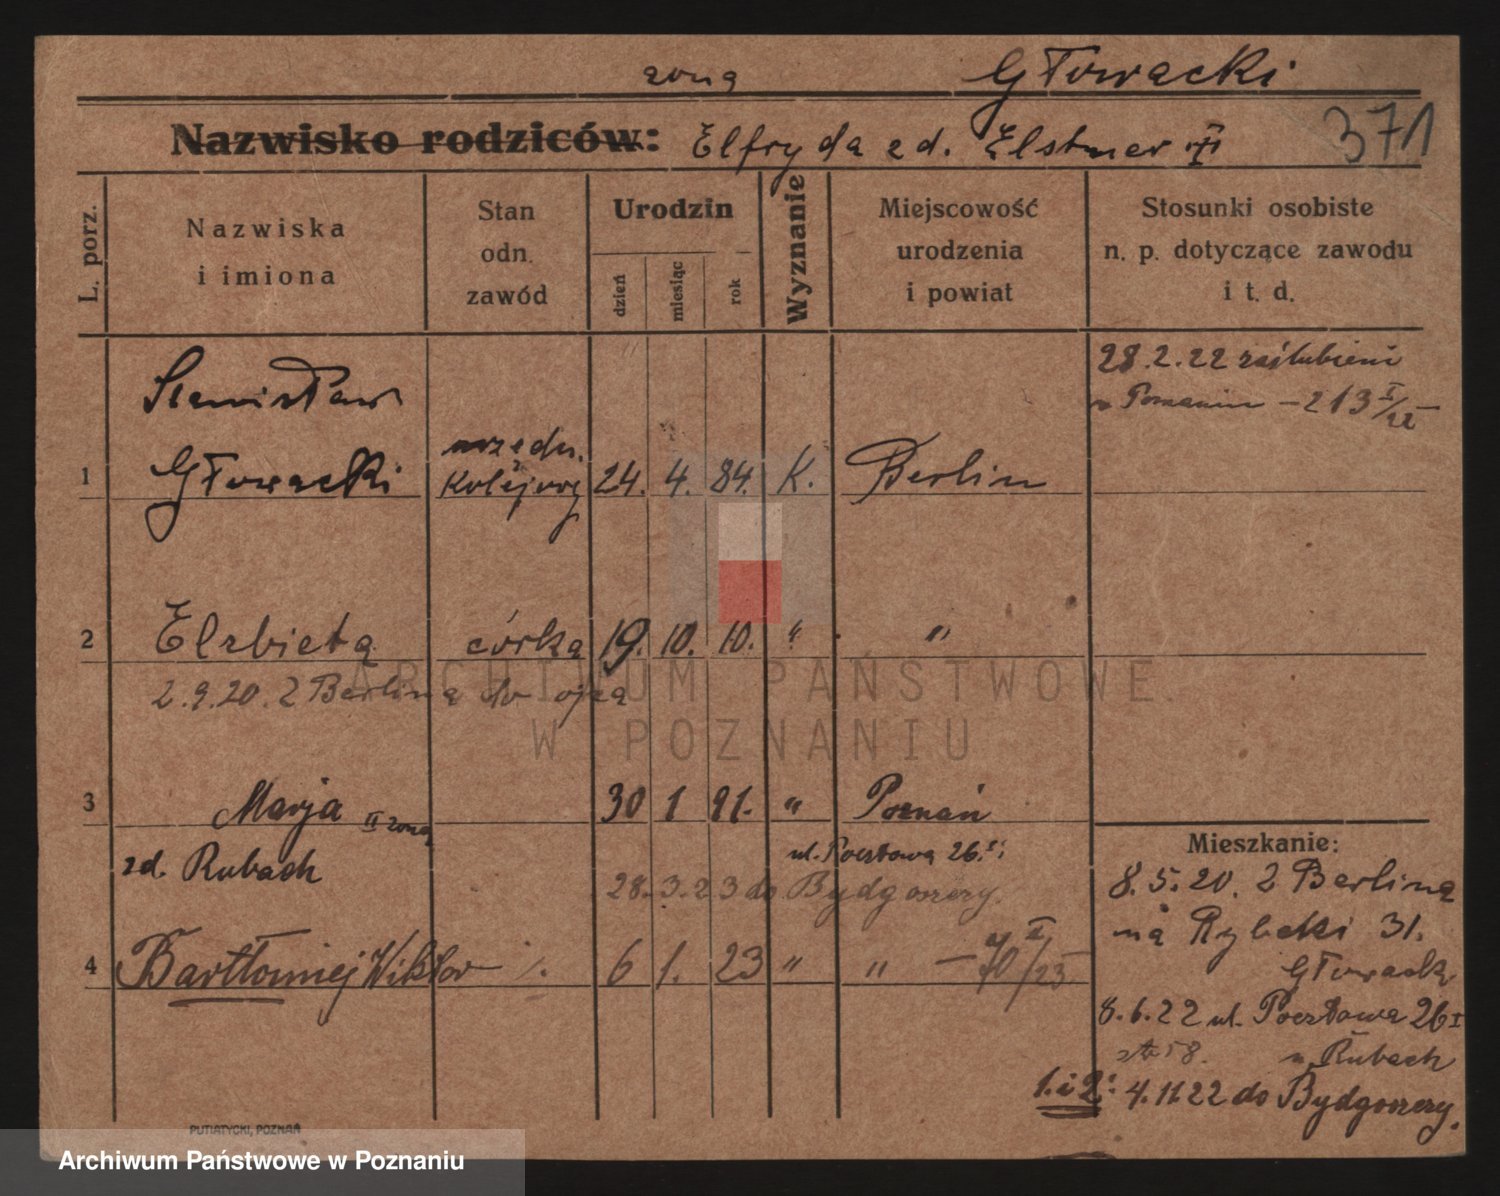 żona Głowacki
Nazwisko rodziców: Elfryda zd. Elstner 371
L. porz.
Nazwiska
i imiona
Stan
odn.
zawód
Urodzin
dzień
miesiąc
rok
Wyznanie
Miejscowość
urodzenia
i powiat
Stosunki osobiste
n. p. dotyczące zawodu
i t. d.
28.2.22 zaślubieni
w Poznaniu – 213 I/22
Stanisław
urzędn.
1 Głowacki kolejowy 24. 4. 84. K. Berlin
2 Elzbieta córka 19. 10. 10. " "
2.9.20. z Berlina do ojca
3 Marja II żona 30 1 91. " Poznań
zd. Rubach
ul. Pocztowa 26.
28.3.23 do Bydgoszczy.
4 Bartłomiej Wiktor 6 1. 23 " " – 70/23
Mieszkanie:
8.5.20. z Berlina
na Rybaki 31.
Głowacki
8.6.22 ul. Pocztowa 26 I
u Rubach
1. i 2: 4.11.22 do Bydgoszczy.
PUTIATYCKI, POZNAŃ
ARCHIWUM PAŃSTWOWE
W POZNANIU
Archiwum Państwowe w Poznaniu